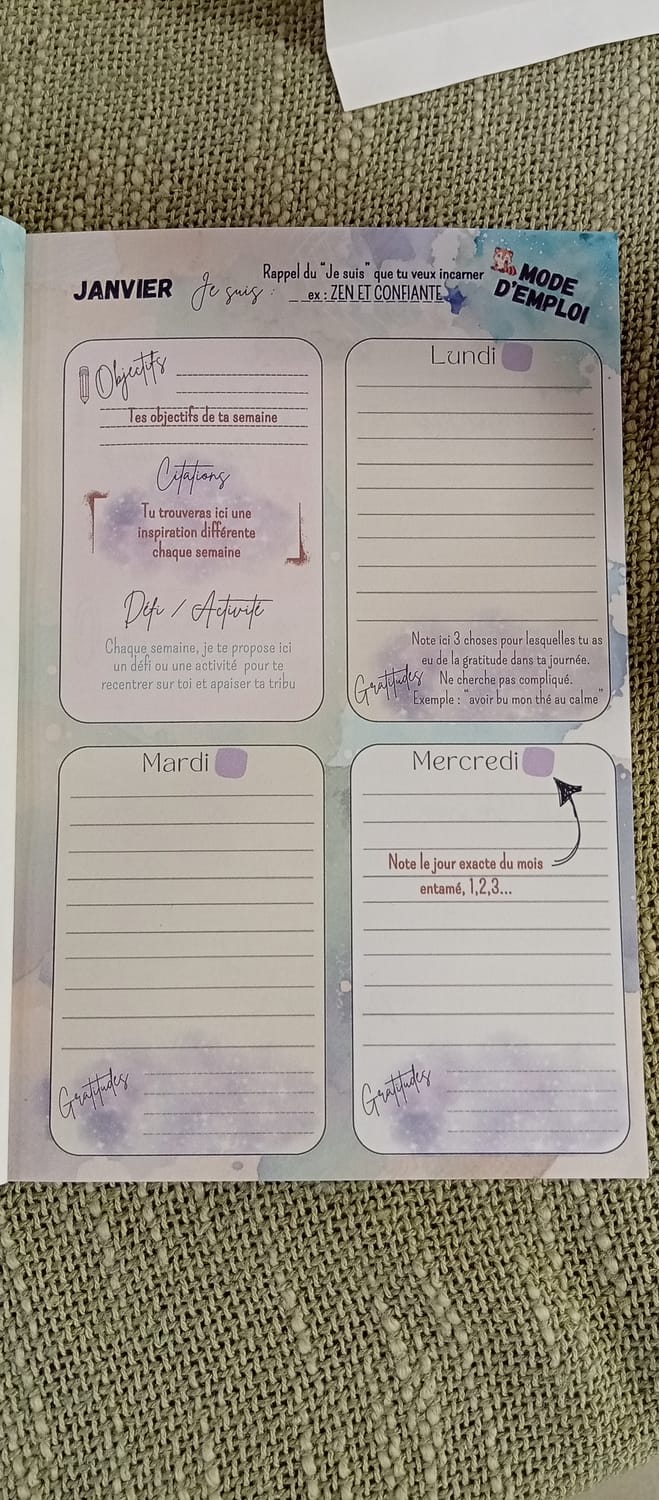 JANVIER
Je suis :
Rappel du "Je suis" que tu veux incarner
ex : ZEN ET CONFIANTE
MODE
D'EMPLOI
Objectifs
Tes objectifs de ta semaine
Citations
Tu trouveras ici une
inspiration différente
chaque semaine
Défi / Activité
Chaque semaine, je te propose ici
un défi ou une activité pour te
recentrer sur toi et apaiser ta tribu
Lundi
Note ici 3 choses pour lesquelles tu as
eu de la gratitude dans ta journée.
Gratitudes
Ne cherche pas compliqué.
Exemple : "avoir bu mon thé au calme"
Mardi
Gratitudes
Mercredi
Note le jour exacte du mois
entamé, 1,2,3...
Gratitudes